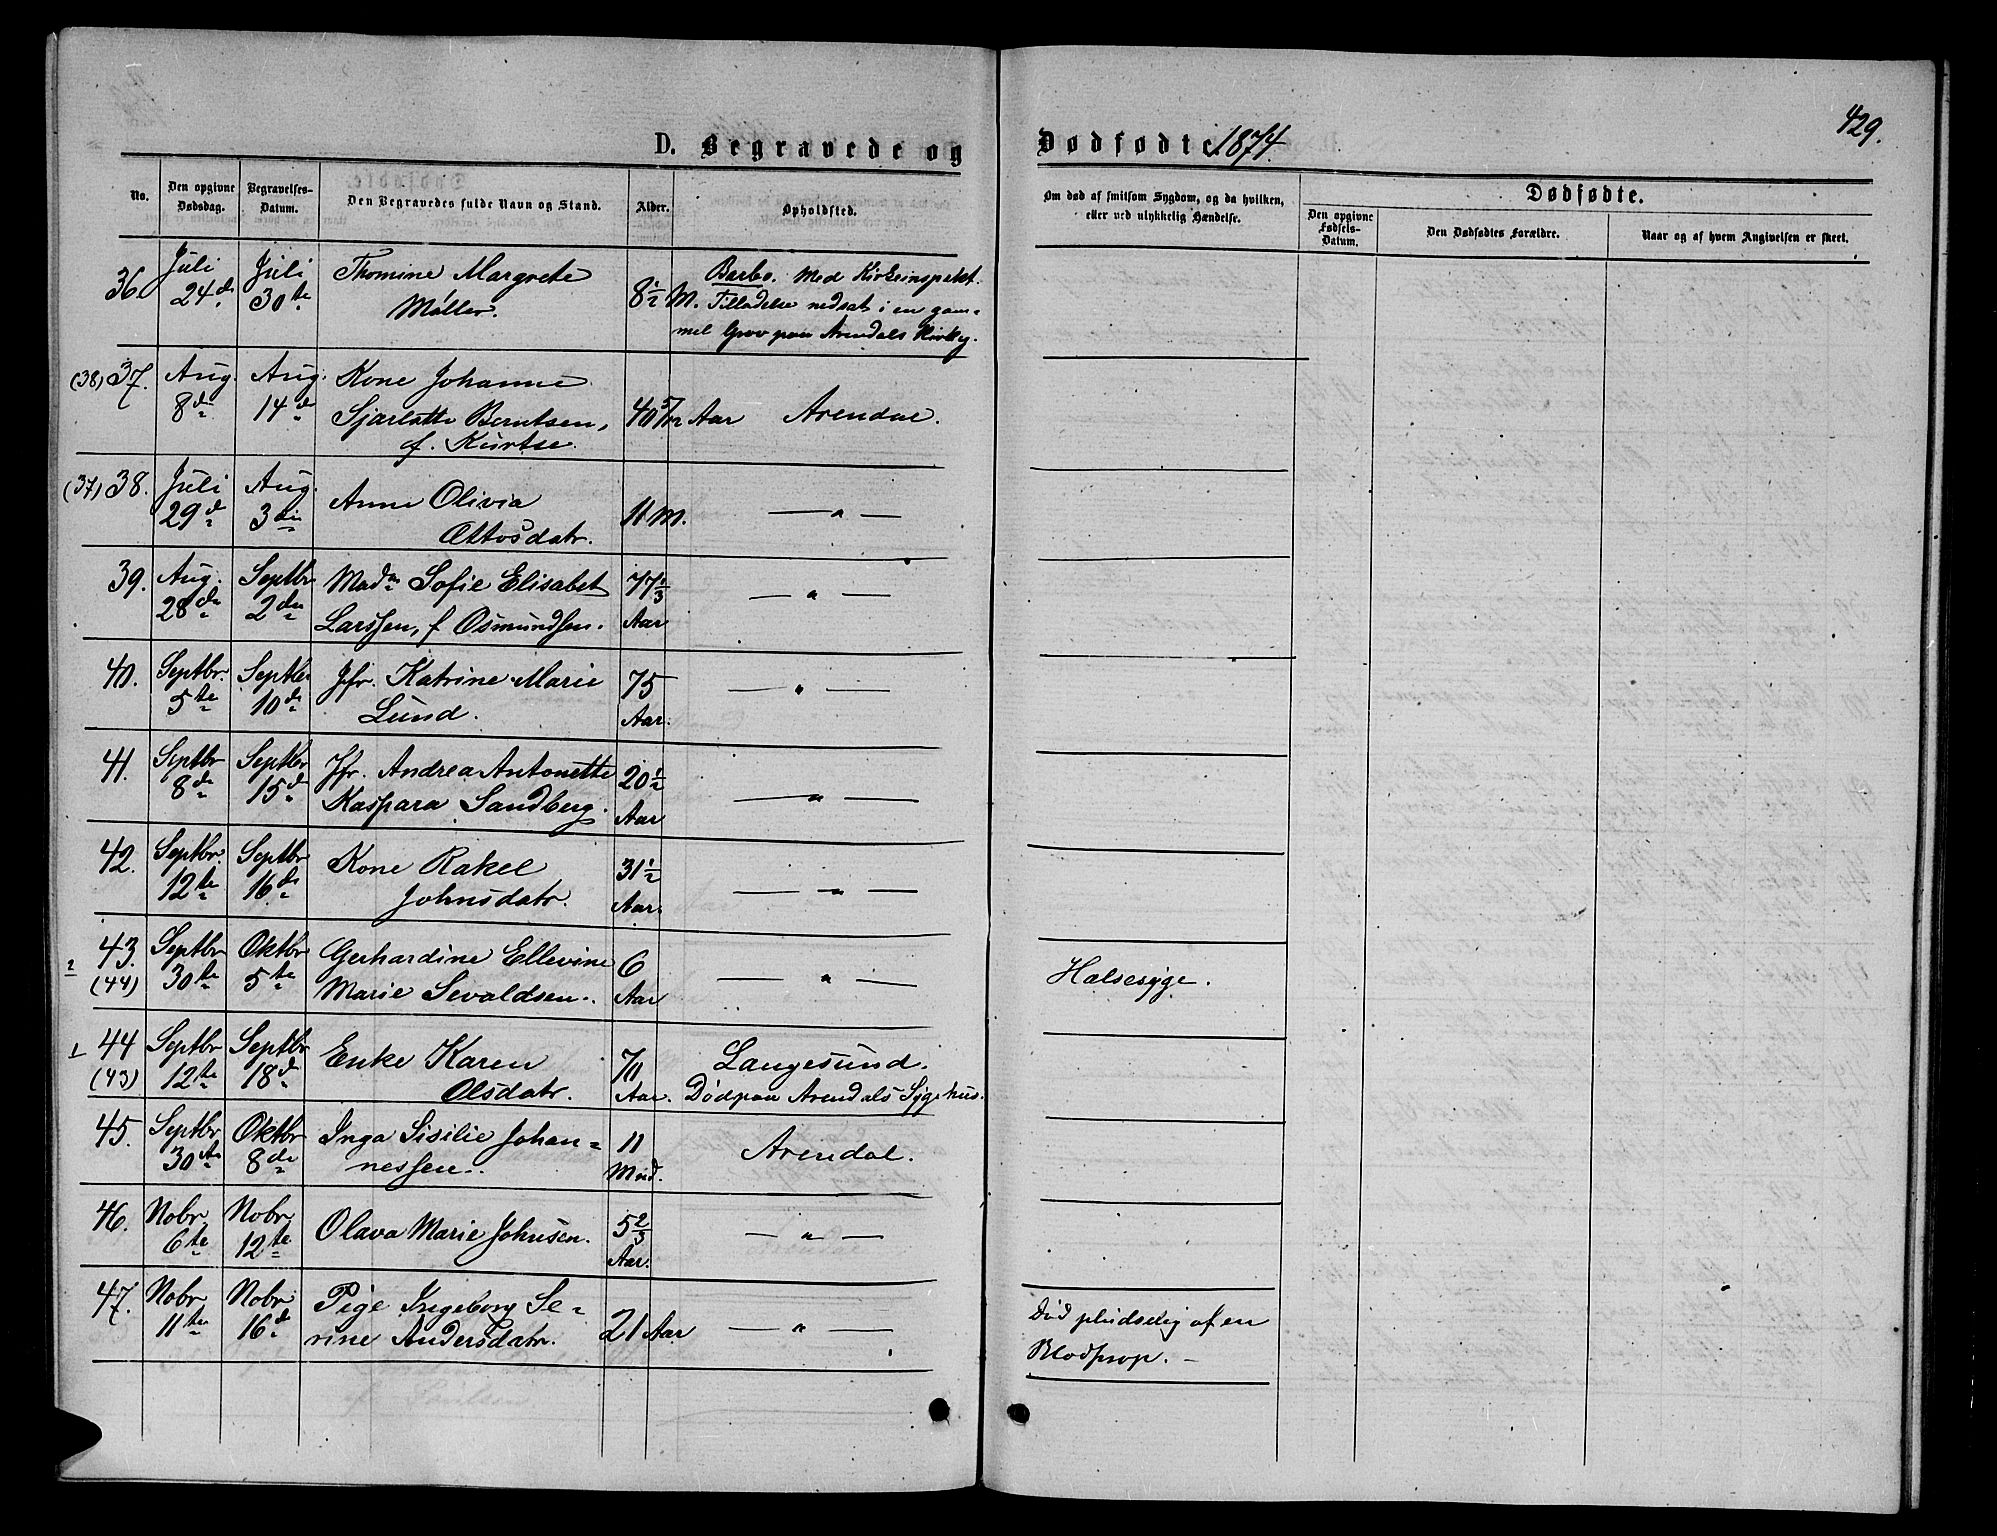 429.
D. Begravede og Dødfødte 1874.
No.
Den opgivne Dødsdag.
Begravelses-Datum.
Den Begravedes fulde Navn og Stand.
Alder.
Opholdsted.
Om død af smitsom Sygdom, og da hvilken, eller ved ulykkelig Hændelse.
Dødfødte.
Den opgivne Fødsels-Datum.
Den Dødfødtes Forældre.
Naar og af hvem Angivelsen er skeet.
36. Juli 24de Juli 30te Thomine Margrete Møller. 8½ M. Barbo. Med Kirkeinspekt. Tilladelse nedsat i en gam=
mel Grav paa Arendals Kirkeg.
(38) 37. Aug. 8de Aug. 14de Kone Johanne
Sjarlotte Berntsen, 40 5/12 Aar Arendal.
f. Kurtse.
(37) 38. Juli 29de Aug. 3die Anne Olivia
Ottosdatr. 11 M. — " —
39. Aug. 28de Septbr 2den Madm Sofie Elisabet
Larssen, f Osmundsen. 77⅓ Aar — " —
40. Septbr 5te Septbr 10de Jfr. Katrine Marie
Lund. 75 Aar. — " —
41. Septbr 8de Septbr 15de Jfr. Andrea Antonette
Kaspara Sandberg. 20½ Aar — " —
42. Septbr. 12te Septbr 16de Kone Rakel
Johnsdatr. 31½ Aar. — " —
2 43. (44) Septbr 30te Oktbr 5te Gerhardine Ellevine
Marie Sevaldsen. 6 Aar — " — Halsesyge.
1 44 (43) Septbr 12te Septbr 18de Enke Karen
Olsdatr. 70 Aar. Langesund.
Død paa Arendals Sygehus.
45. Septbr 30te Oktbr 8de Inga Sisilie Johan=
nessen. 11 Mnd. Arendal.
46. Nobr 6te Nobr 12te Olava Marie Johnsen. 5⅔ Aar. — " —
47. Nobr 11te Nobr 16de Pige Ingeborg Se=
rine Andersdatr. 21 Aar — " — Død pludselig af en
Blodprop. —